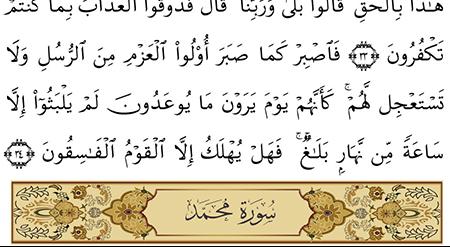 هَٰذَا بِٱلْحَقِّ قَالُوا۟ بَلَىٰ وَرَبِّنَا قَالَ فَذُوقُوا۟ ٱلْعَذَابَ بِمَا كُنتُمْ
تَكْفُرُونَ ٣٣ فَٱصْبِرْ كَمَا صَبَرَ أُو۟لُوا۟ ٱلْعَزْمِ مِنَ ٱلرُّسُلِ وَلَا
تَسْتَعْجِل لَّهُمْ ۚ كَأَنَّهُمْ يَوْمَ يَرَوْنَ مَا يُوعَدُونَ لَمْ يَلْبَثُوٓا۟ إِلَّا
سَاعَةً مِّن نَّهَارٍۭ بَلَٰغٌ ۚ فَهَلْ يُهْلَكُ إِلَّا ٱلْقَوْمُ ٱلْفَٰسِقُونَ ٣٤
سُورَة محمد